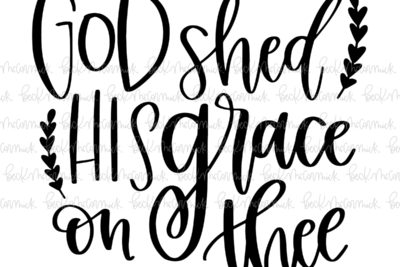 GOD shed
HIS grace
on thee